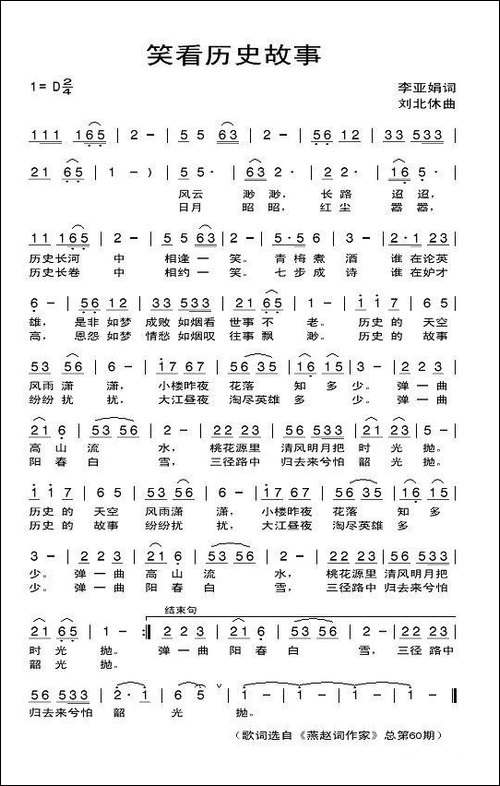 笑看历史故事
1=D 2/4
李亚娟词
刘北休曲
111 165 | 2 - | 5 5 63 | 2 - | 56 12 | 33 533 |
21 65 | 1 - ) | 5 5· | 63· | 2 2· | 16 5· |
风云 渺渺， 长路 迢迢，
日月 昭昭， 红尘 嚣嚣，
111 165 | 2 - | 55 63 | 2 - | 5·5 6 | 3 2 | 2·1 23 |
历史长河 中 相逢一 笑。 青梅煮 酒 谁在论英
历史长卷 中 相约一 笑。 七步成 诗 谁在妒才
6 - | 56 12 | 33 533 | 221 65 | 1 - | i i7 | 6 5 |
雄， 是非如梦 成败如烟看 世事不 老。 历史的 天空
高， 恩怨如梦 情愁如烟叹 往事飘 渺。 历史的 故事
53 56 | 6 - | i7 67 | 56 35 | 16 15 | 3 - | 2 23 |
风雨潇 潇， 小楼昨夜 花落 知多 少。 弹一曲
纷纷扰 扰， 大江昼夜 淘尽英雄 多 少。 弹一曲
21 6 | 53 56 | 2 - | 223 21 | 56 533 | 21 65 | 1 - |
高山 流 水， 桃花源里 清风明月把 时光 抛。
阳春 白 雪， 三径路中 归去来兮怕 韶光 抛。
i i7 | 6 5 | 53 56 | 6 - | i7 67 | 56 35 | 16 15 |
历史的 天空 风雨潇 潇， 小楼昨夜 花落 知多
历史的 故事 纷纷扰 扰， 大江昼夜 淘尽英雄 多
3 - | 2 23 | 21 6 | 53 56 | 2 - | 223 21 | 56 533 |
少。 弹一曲 高山 流 水， 桃花源里 清风明月把
少。 弹一曲 阳春 白 雪， 三径路中 归去来兮怕
结束句
21 65 | 1 - :‖ 2 23 | 221 6 | 53 56 | 2 - | 223 21 |
时光 抛。 弹一曲 阳春 白 雪， 三径路中
韶光 抛。
56 533 | 2· 1 | 6 5 | 1 - | 1 - | 1 - ‖
归去来兮怕 韶 光 抛。
（歌词选自《燕赵词作家》总第60期）